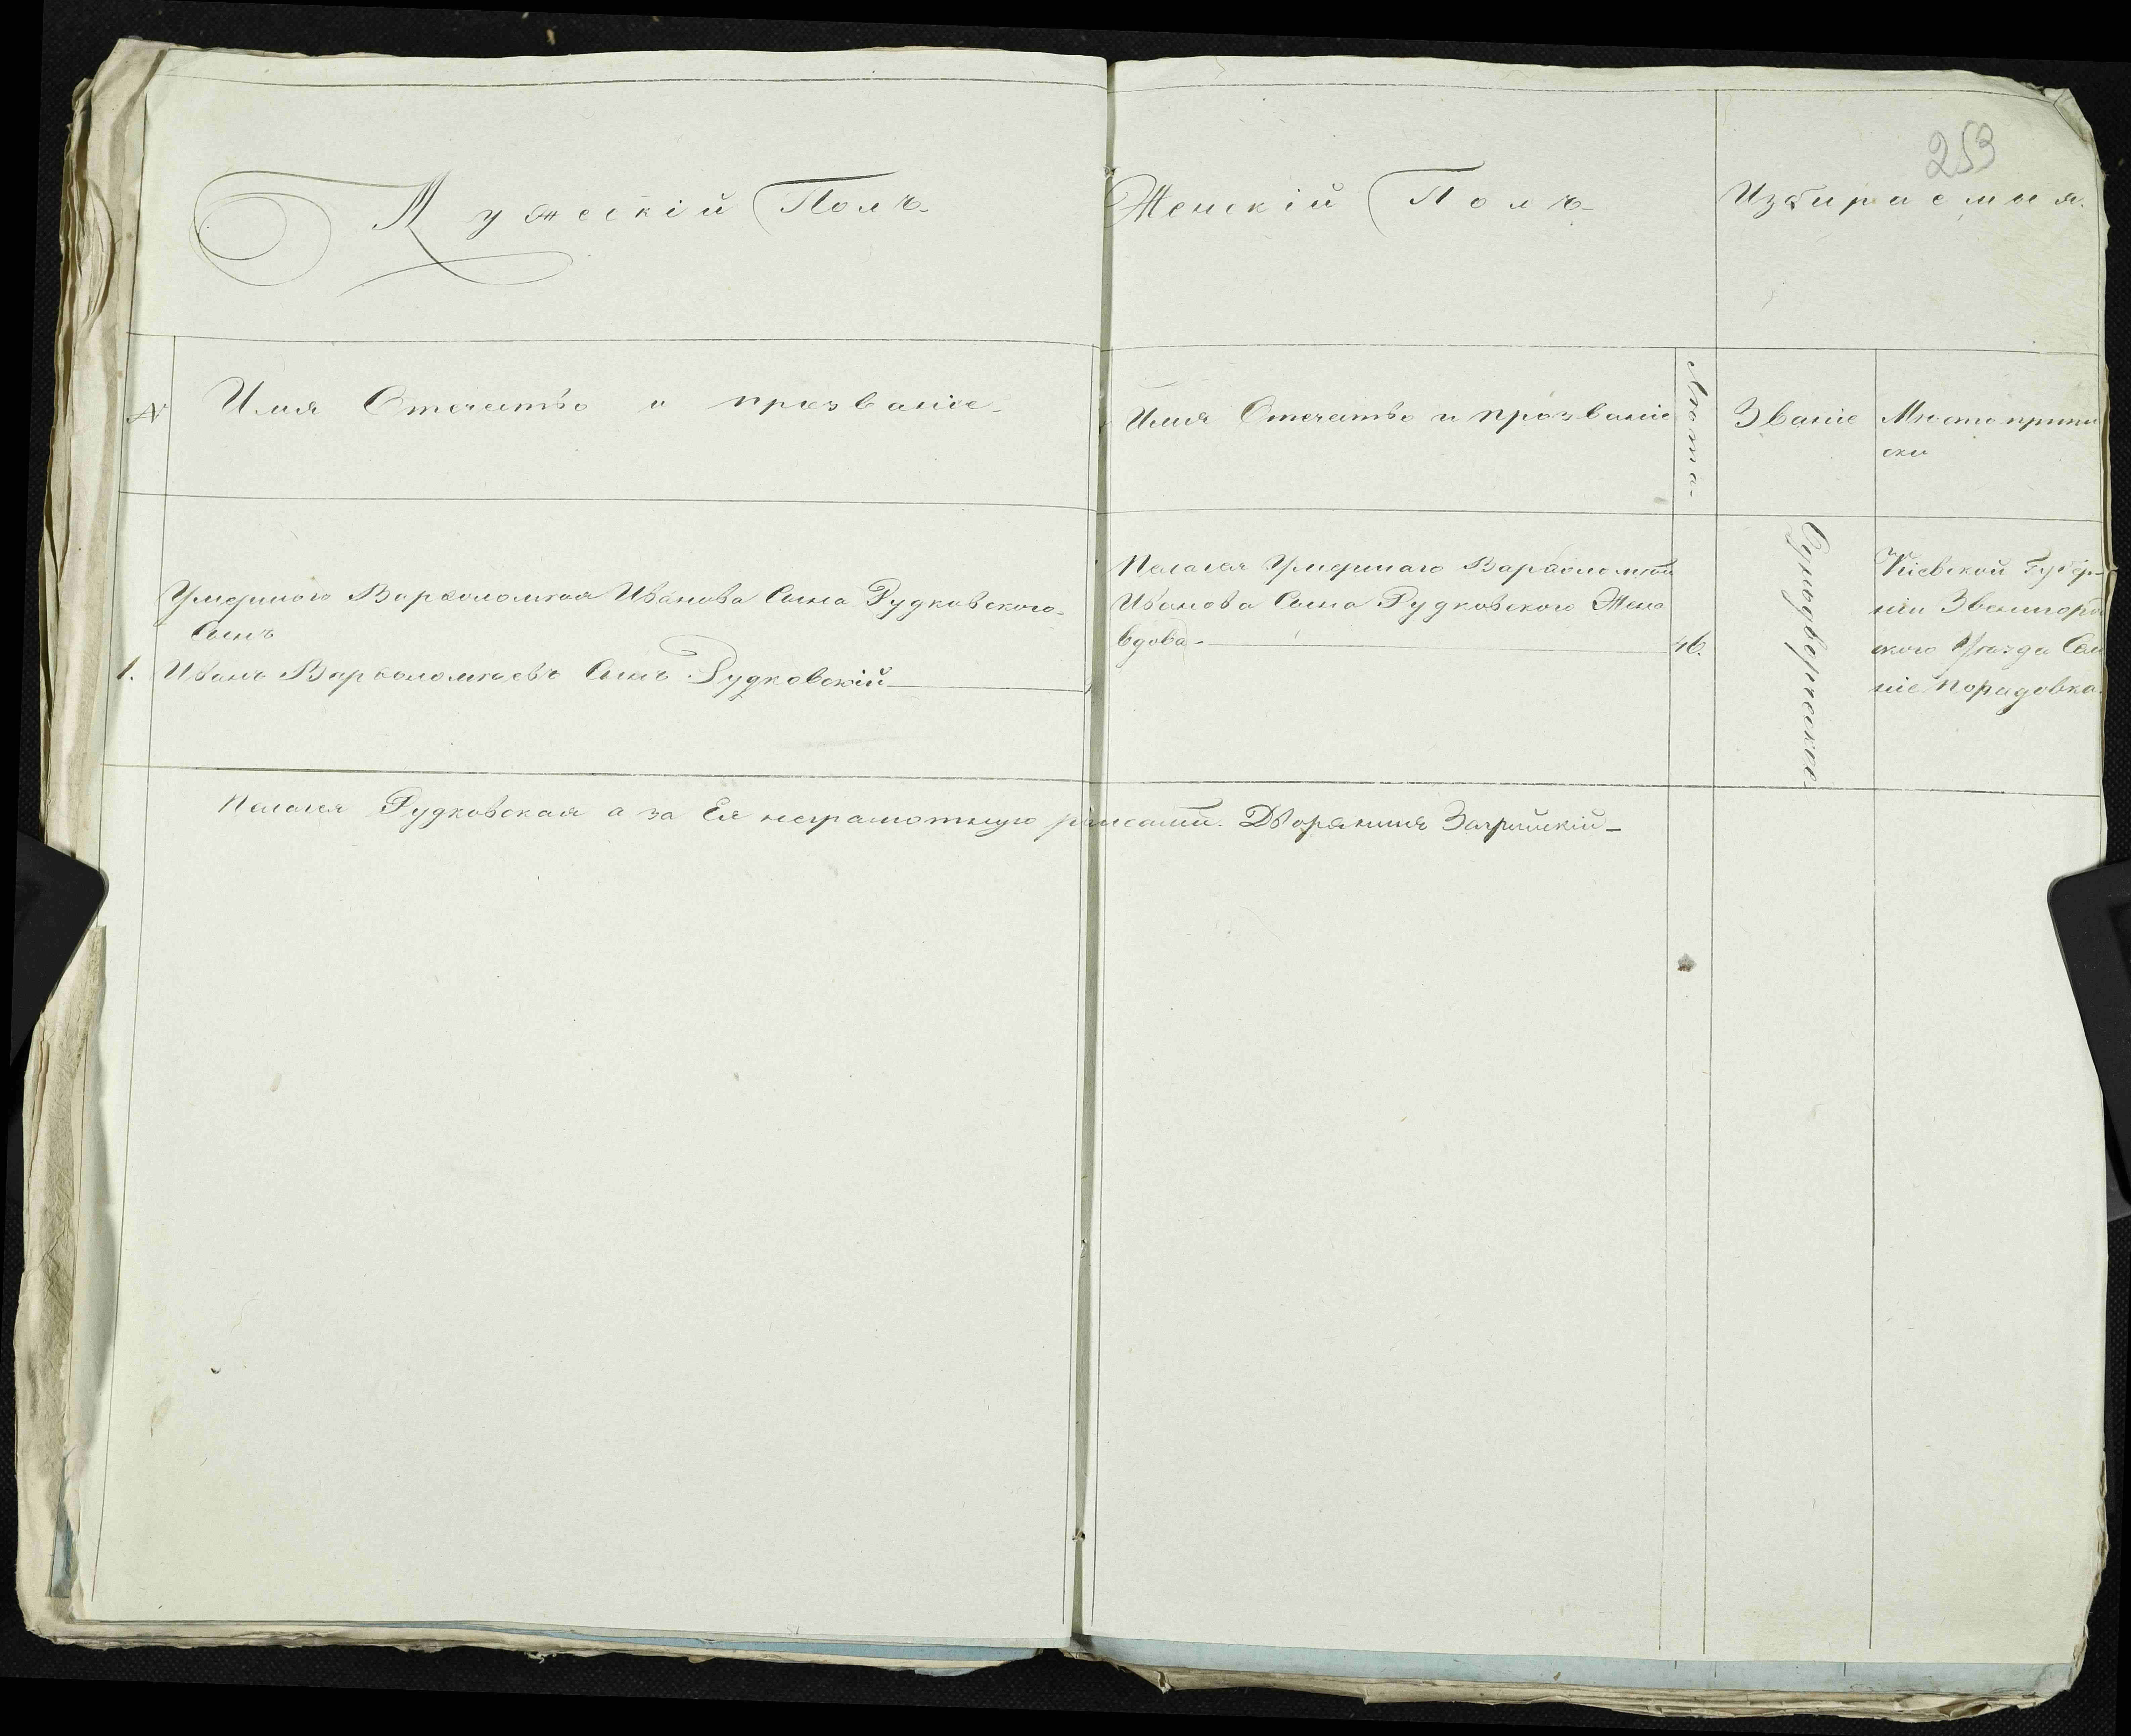 253
Мужескій Полъ
Женскій Полъ
Избираемыя
№
Имя Отечество и прозваніе
Имя Отечество и прозваніе
Лѣта
Званіе
Мѣсто припи
ски
Умершаго Варѳоломѣя Иванова Сына Рудковского
Сынъ
1. Иванъ Варѳоломѣевъ Сынъ Рудковскій
Пелагея Умершаго Варѳоломѣя
Иванова Сына Рудковского Жена
вдова 46.
Однодворческое
Кіевской Губер-
ніи Звенигород
ского Уѣзда Селе
ніе Порадовка
Пелагея Рудковская а за Ея неграмотную Дворянинъ